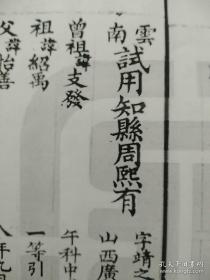 雲南試用知縣周熙有
字靖之
山西廣
曾祖諱支發
午科中
祖諱紹禹
一等引
父諱怡善
八年九月